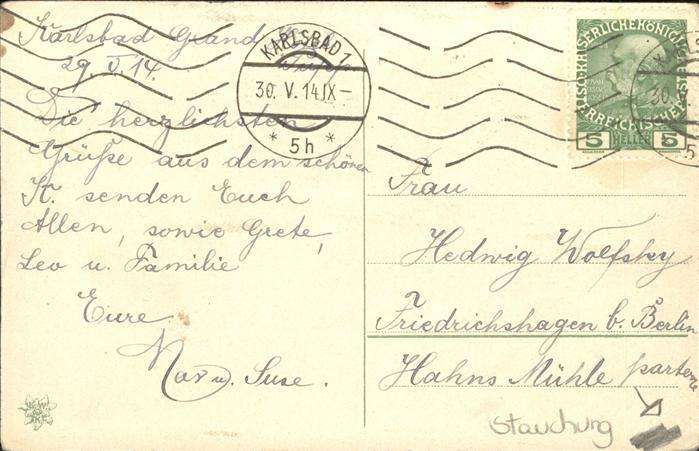 Karlsbad Grand
29. V. 14.
Die herzlichsten
Grüße aus dem schönen
K. senden Euch
Allen, sowie Grete,
Leo u. Familie
Eure
Max u. Suse.
KARLSBAD 1
30. V. 14 IX-
* 5h *
5 HELLER 5
Frau
Hedwig Wolfsky
Friedrichshagen b. Berlin
Hahns Mühle partere
Stauchung